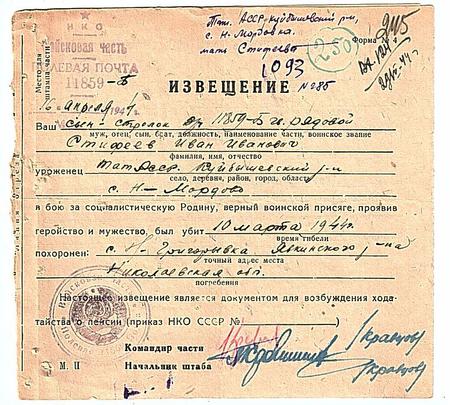 НКО
Войсковая часть
ПОЛЕВАЯ ПОЧТА
11859-Б
Место для
штампа части
Тат. АССР. Куйбышевский р-н,
с. Н-Мордовка
мать Стифеева
1093
250
Форма № 4
ИЗВЕЩЕНИЕ №285
16 апреля 1944
Ваш сын - стрелок в/ч 11859-Б гв. рядовой
муж, отец, сын, брат, должность, наименование части, воинское звание
Стифеев Иван Иванович
фамилия, имя, отчество
уроженец ТатАССР. Куйбышевский р-н
село, деревня, район, город, область
с. Н-Мордово
в бою за социалистическую Родину, верный воинской присяге, проявив
геройство и мужество, был убит 10 марта 1944г.
время гибели
похоронен: с. Н-Григорьевка Явкинского р-на
точный адрес места
Николаевская обл.
погребения
Настоящее извещение является документом для возбуждения хода-
тайства о пенсии (приказ НКО СССР № )
Командир части (Кравцов)
М. П. Начальник штаба (Кравцов)